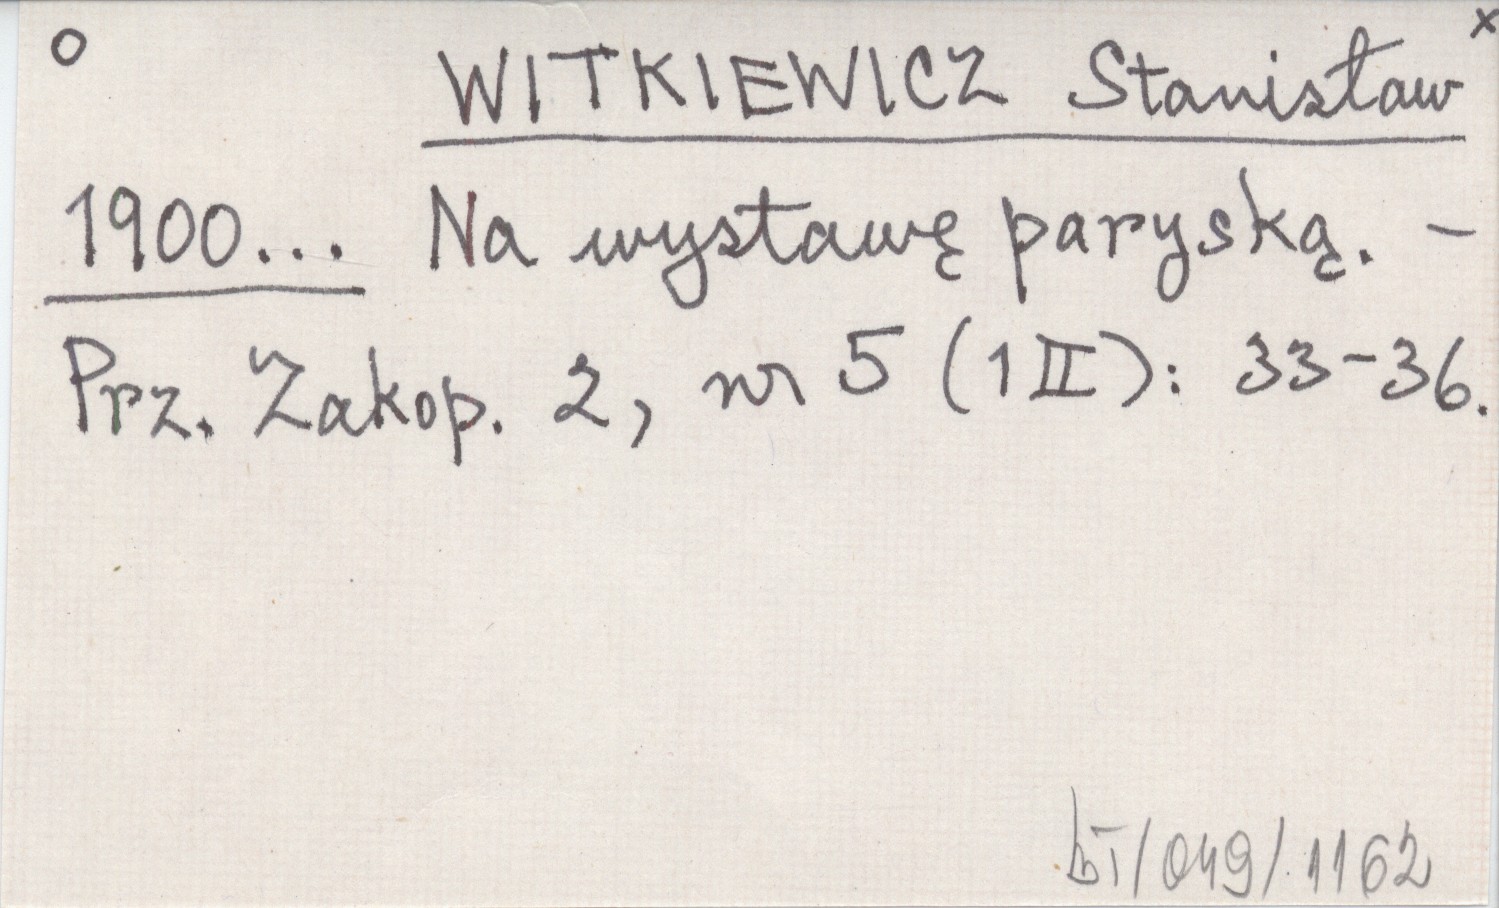 o WITKIEWICZ Stanisław x
1900... Na wystawę paryską. -
Prz. Zakop. 2, nr 5 (1 II): 33-36.
bT/049/1162